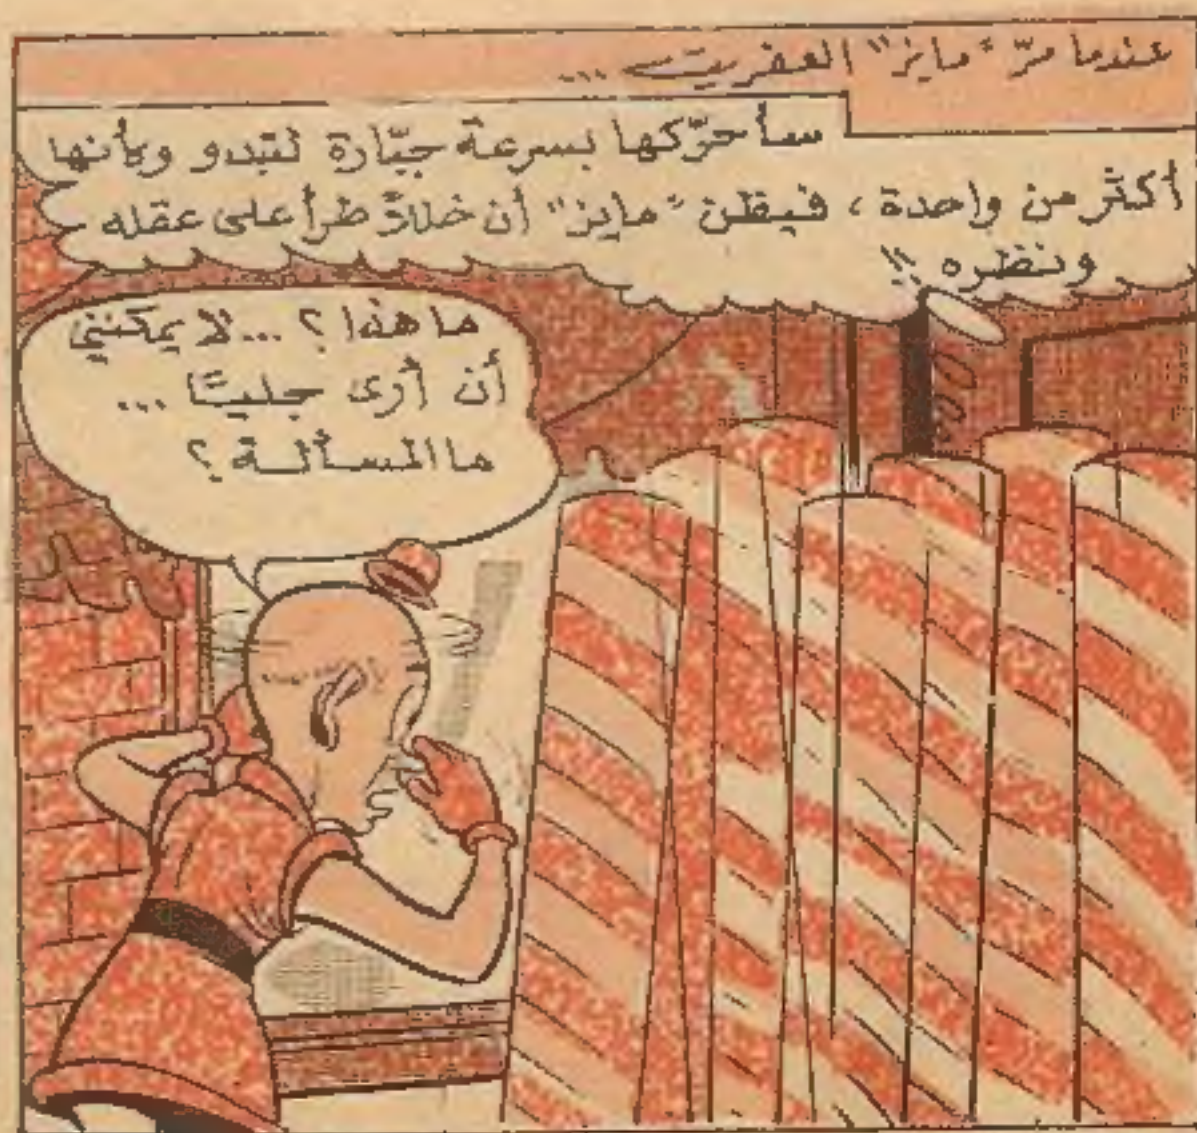 عندما مرّ "مايز" العفريت ...
سأحرّكها بسرعة جبّارة لتبدو وكأنها
أكثر من واحدة ، فيظن "مايز" أن خللاً طرأ على عقله
ونظره !!
ما هذا ؟ ... لا يمكنني
أن أرى جليًّا ...
ما المسألة ؟